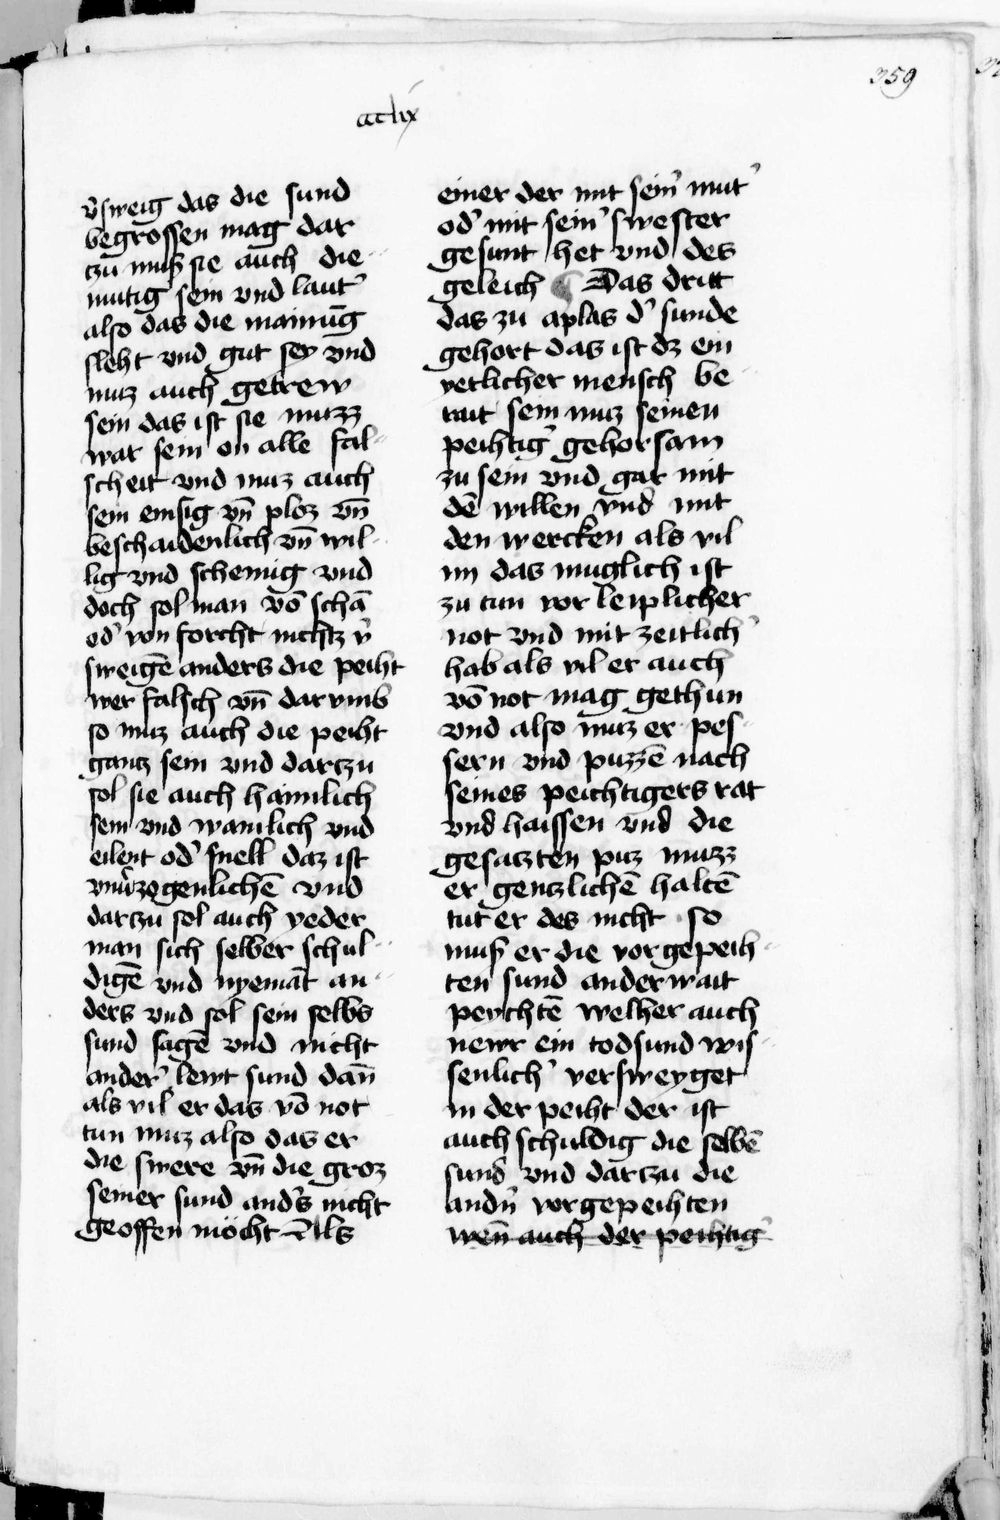 359
cclix
v̾sweig das die sund
begrossen mag dar
tzu muß sie auch die
mutig sein vnd laut̾
also das die mainūg
sleht vnd gut sey vnd
muz auch getrew
sein das ist sie muzz
war sein on alle fal-
scheit vnd muz auch
sein einsig vn̄ ploz vn̄
beschaidenlich vn̄ wil-
lig vnd schemig vnd
doch sol man vō schā
od̾ von forcht nichtz v̾
sweigē anders die peiht
wer falsch vn̄ darvmb
so muz auch die peiht
gantz sein vnd dartzu
sol sie auch haimlich
sein vnd wainlich vnd
eilent od̾ snell daz ist
vnu̾zogenlichē vnd
dartzu sol auch yeder
man sich selber schul-
digē vnd nyemāt an-
ders vnd sol sein selbs
sund sagē vnd nicht
ander̾ lewt sund dan̄
als vil er das vō not
tun muz also das er
die swere vn̄ die groz
seiner sund and̾s nicht
geoffen möcht Als
einer der mit sein̾ mut̾
od̾ mit sein̾ swester
gesunt het vnd des
geleich ¶ Das dritt
das zu aplas d̾ sunde
gehort das ist dz ein
yetlicher mensch be-
rait sein muz seinen
peihtig̾ gehorsam
zu sein vnd gar mit
dē willen vnd mit
den wercken als vil
im das muglich ist
zu tun vor leiplicher
not vnd mit zeitlich̾
hab als vil er auch
vō not mag gethun
vnd also muz er pes-
sern vnd puzzē nach
seines peichtigers rat
vnd haissen vnd die
gesatzten puz muzz
er gentzlichē haltē
tut er des nicht so
muß er die vorgepeih-
ten sund anderwait
peychtē welher auch
newr ein todsund wis-
senlich̾ versweyget
in der peiht der ist
auch schuldig die selbē
sund vnd dartzu die
andn̾ vorgepeihten
wen̄ auch der peihtig̾